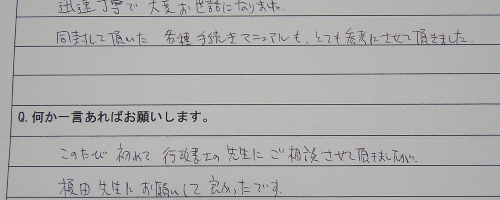 迅速丁寧で 大変お世話になりました。
同封して頂いた 各種手続きマニュアルも、とても参考にさせて頂きました。
Q.何か一言あればお願いします。
このたび 初めて 行政書士の先生に ご相談させて頂きましたが、
榎田先生に お願いして 良かったです。